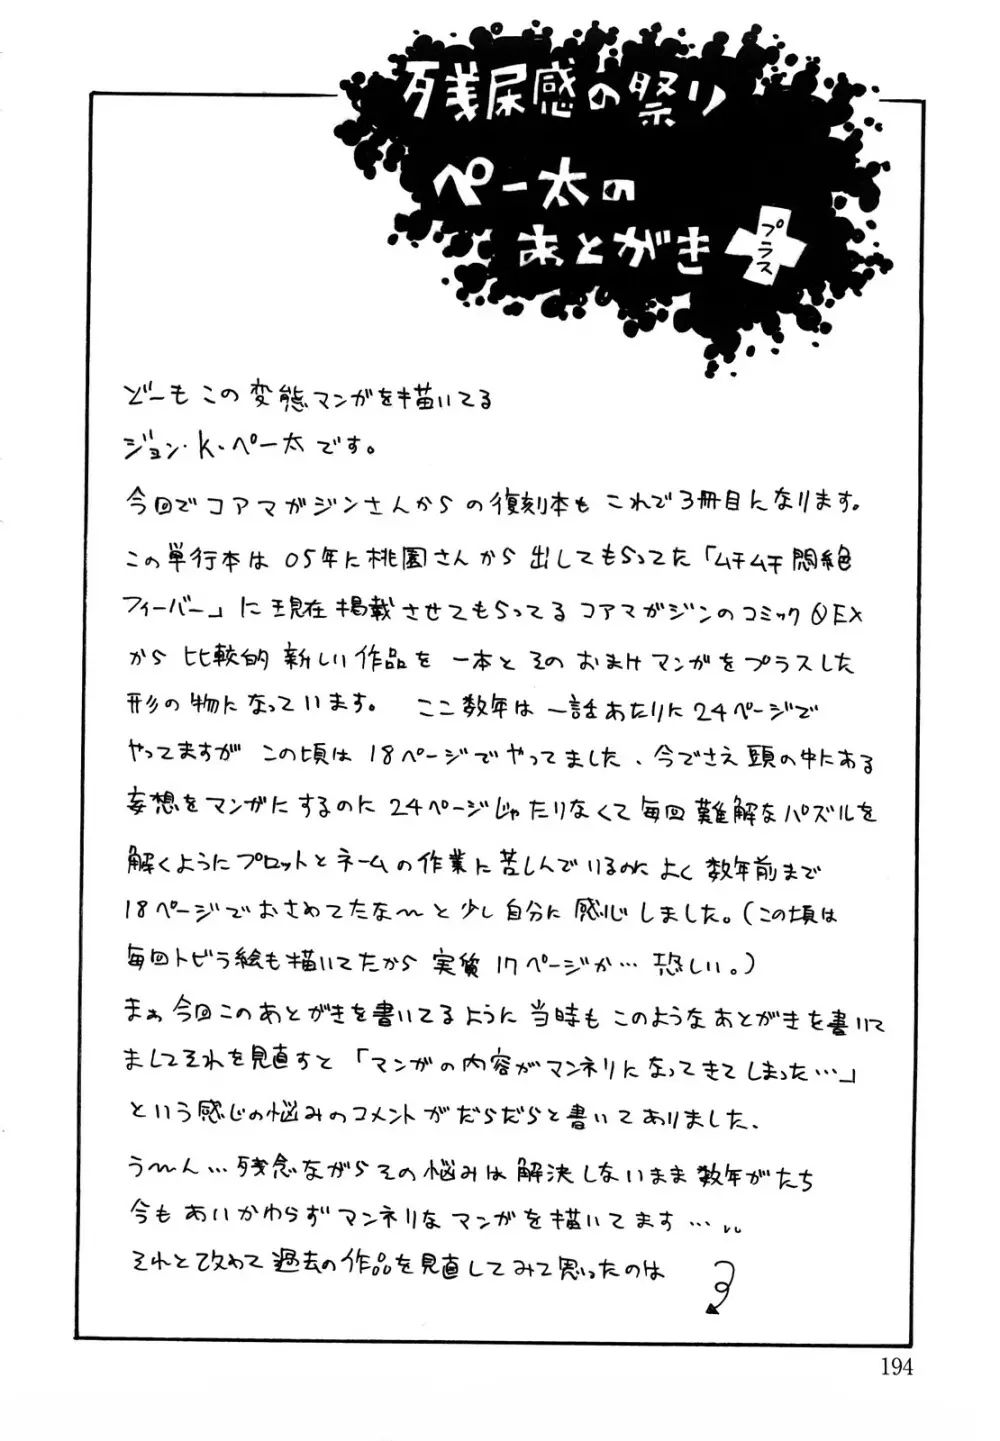 残尿感の祭り
ペー太の
あとがき
プラス
どーも この 変態マンガを描いてる
ジョン・K・ペー太です。
今回でコアマガジンさんからの復刻本も これで3冊目になります。
この単行本は 05年に桃園さんから 出してもらってた「ムチムチ悶絶
フィーバー」に 現在 掲載させてもらってる コアマガジンのコミックØEX
から 比較的 新しい 作品を 一本と そのおまけマンガをプラスした
形の物になっています。 ここ数年は一話あたりに24ページで
やってますが この頃は 18ページでやってました、今でさえ頭の中にある
妄想をマンガにするのに 24ページじゃたりなくて 毎回 難解なパズルを
解くようにプロットとネームの作業に苦しんでいるのに よく 数年前まで
18ページでおさめてたな〜と 少し自分に 感心しました。(この頃は
毎回トビラ絵も描いてたから 実質 17ページか… 恐しい。)
まぁ今回このあとがきを書いてるように 当時も このようなあとがきを書いて
ましてそれを見直すと「マンガの内容がマンネリになってきてしまった…」
という感じの悩みのコメントがだらだらと書いてありました、
う〜ん…残念ながらその悩みは解決しないまま数年がたち
今も あいかわらずマンネリな マンガを描いてます…
それと改めて過去の作品を見直してみて思ったのは
194